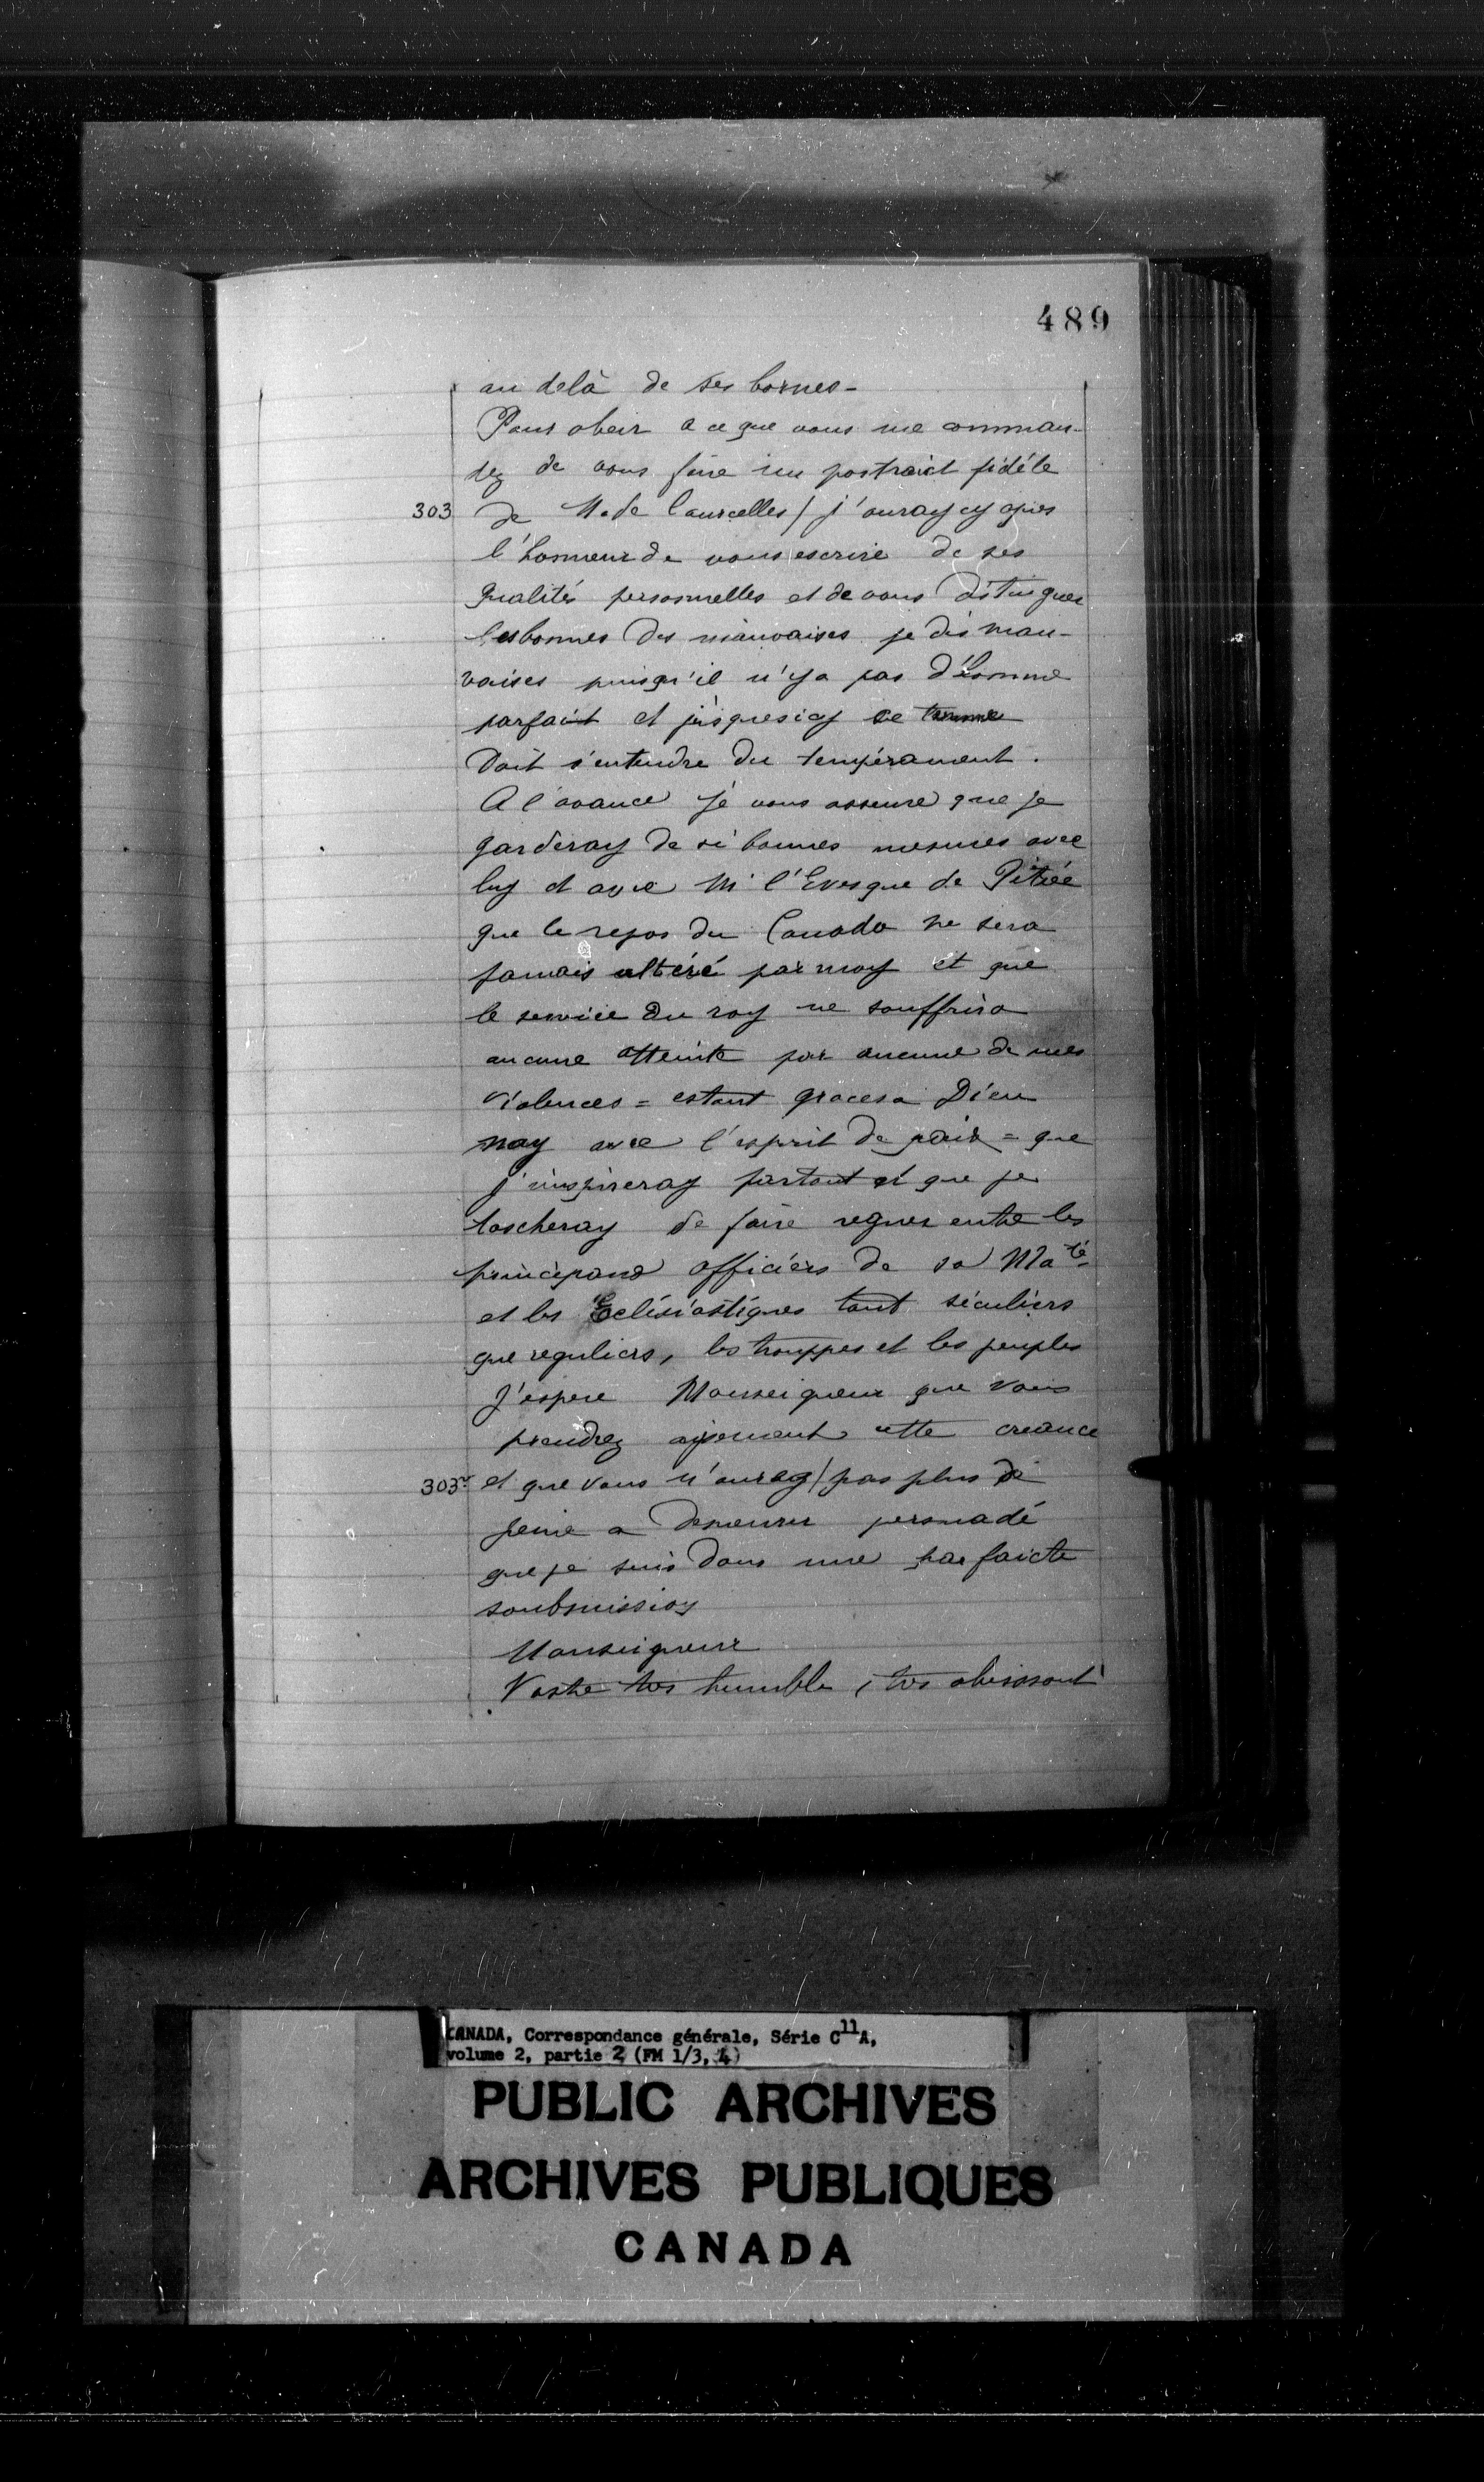 489
au delà de ses bornes -
Pour obeir a ce que vous me comman-
dez de vous faire un portraict fidéle
303 de M. de Courcelles / j'auray cy apres
l'honneur de vous escrire de ses
qualités personnelles et de vous distinguer
les bonnes des mauvaises je dis mau-
vaises puisqu'il n'y a pas d'homme
parfaict et jusques icy ce terme
doit s'entendre du tempérament.
A l'avance je vous asseure que je
garderay de si bonnes mesures avec
luy et avec Mr l'Evesque de Pétrée
que le repos du Canada ne sera
jamais altéré par moy et que
le service du roy ne souffrira
aucune atteinte par aucune de mes
violences = estant graces a Dieu
nay avec l'esprit de paix = que
j'inspireray partout et que je
tascheray de faire regner entre les
principaux officiers de sa Maté
et les Eclésiastiques tant séculiers
que reguliers, les trouppes et les peuples
J'espere Monseigneur que vous
prendrez aysement cette creance
303vo et que vous n'aurez / pas plus de
peine a demeurer persuadé
que je suis dans une parfaicte
soubmission
Monseigneur
Vostre tres humble, tres obeissant
CANADA, Correspondance générale, Série C11A,
volume 2, partie 2 (FM 1/3, 4)
PUBLIC ARCHIVES
ARCHIVES PUBLIQUES
CANADA